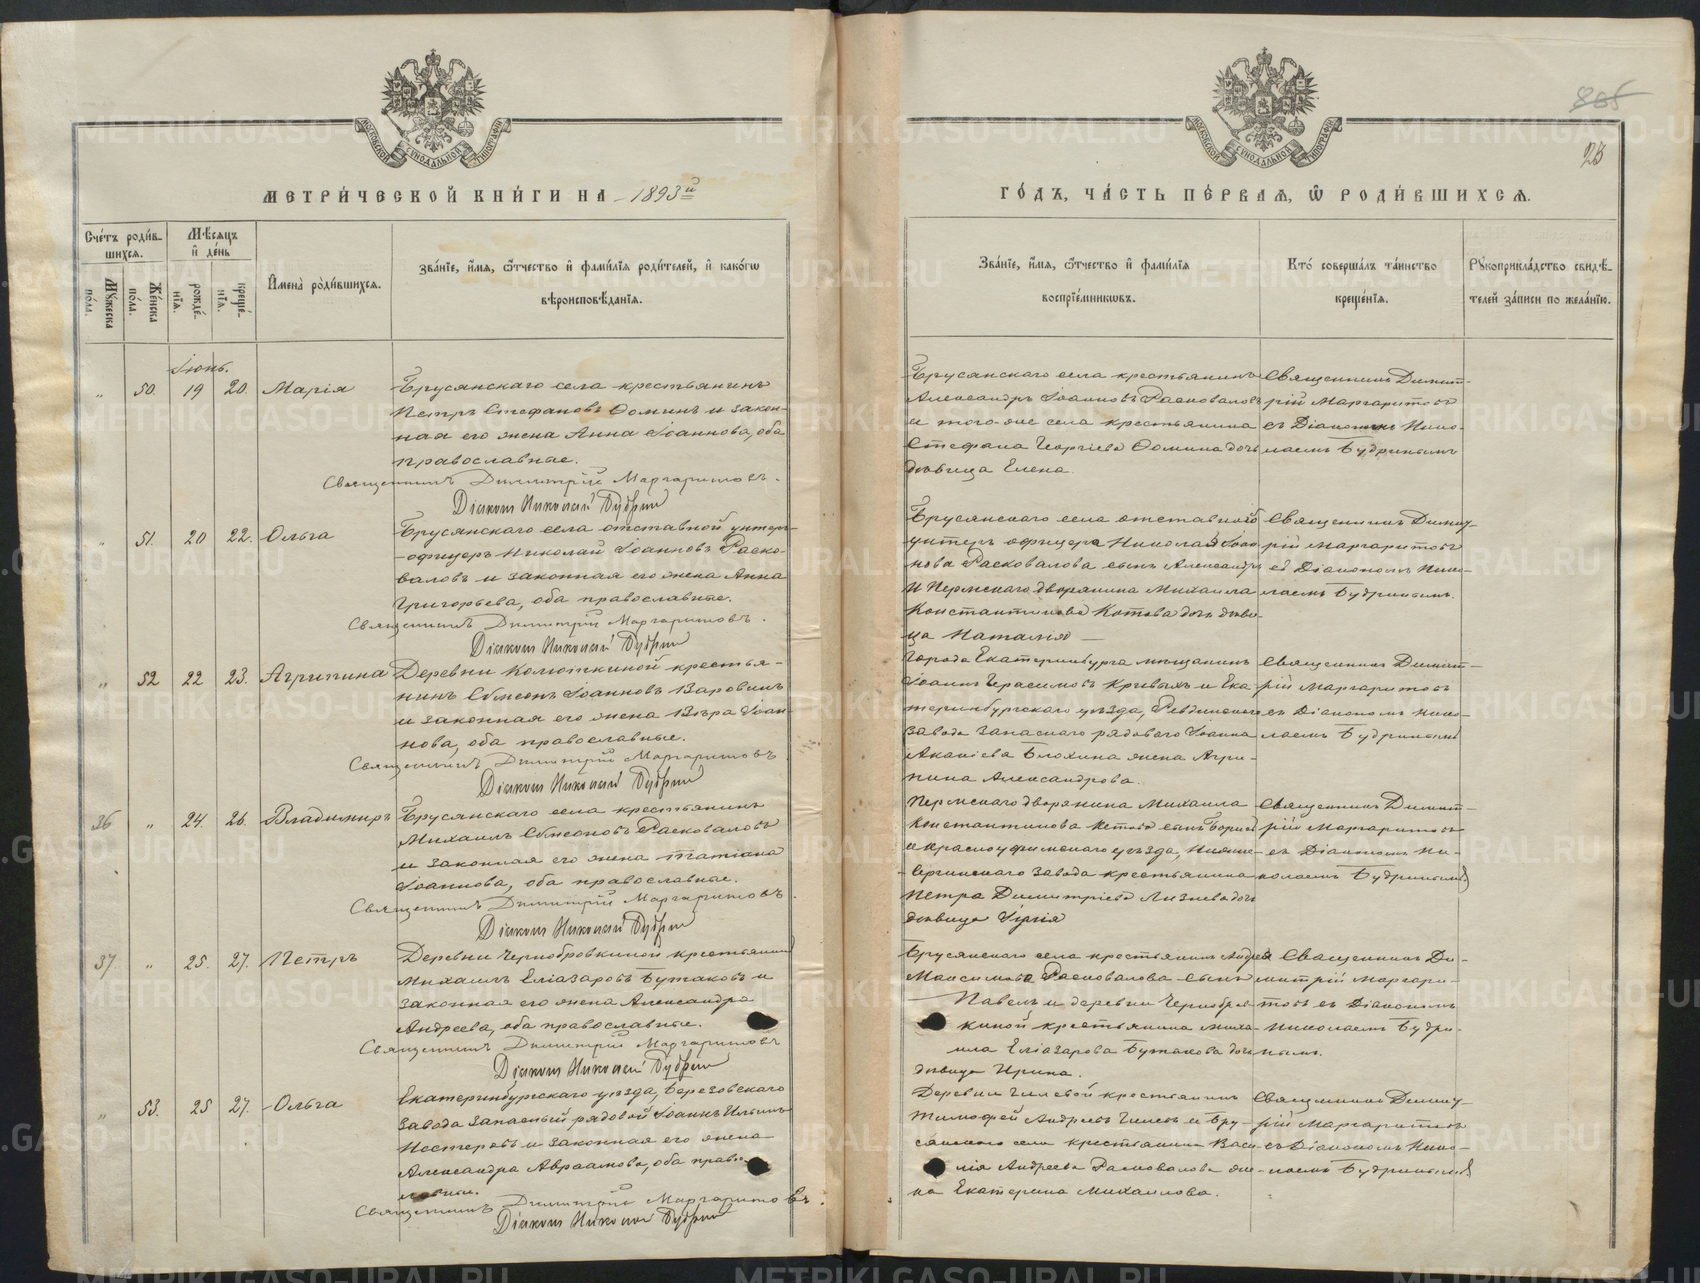 885
23
МОСКОВСКОЙ СѴНОДАЛЬНОЙ ТИПОГРАФІИ
МОСКОВСКОЙ СѴНОДАЛЬНОЙ ТИПОГРАФІИ
МЕТРИ́ЧЕСКОЙ КНИ́ГИ НА 1893й
ГО́ДЪ, ЧА́СТЬ ПЕ́РВАЯ, Ѡ РОДИ́ВШИХСЯ.
Сче́тъ роди́в-
шихся.
Мꙋжеска по́ла.
Же́нска по́ла.
Мѣ́сяцъ
и́ де́нь
рожде́-
нїя.
креще́-
нїя.
И҆мена̀ роди́вшихся.
Зва́нїе, и҆́мя, ѻ҆́тчество и҆ фами́лїя роди́телей, и҆ како́гѡ
вѣроисповѣ́данїя.
Зва́нїе, и҆́мя, ѻ҆́тчество и҆ фами́лїя
воспрїе́мникѡвъ.
Кто̀ соверша́лъ та́инство
креще́нїя.
Рꙋкоприкла́дство свидѣ́-
телей за́писи по жела́нїю.
Іюнь.
„ 50. 19 20. Марія
Брусянскаго села крестьянинъ
Петръ Стефановъ Ѳоминъ и закон-
ная его жена Анна Іоаннова, оба
православные.
Священникъ Димитрій Маргаритовъ.
Діаконъ Николай Будринъ
Брусянскаго села крестьянинъ
Александръ Іоанновъ Расковаловъ
и того-же села крестьянина
Стефана Георгіева Ѳомина дочь
дѣвица Елена.
Священникъ Димит-
рій Маргаритовъ
съ Діакономъ Нико-
лаемъ Будринымъ
„ 51. 20 22. Ольга
Брусянскаго села отставной унтеръ-
-офицеръ Николай Іоанновъ Раско-
валовъ и законная его жена Анна
Григорьева, оба православные.
Священникъ Димитрій Маргаритовъ.
Діаконъ Николай Будринъ
Брусянскаго села отставного
унтеръ офицера Николая Іоан-
нова Расковалова сынъ Александръ
И Пермскаго дворянина Михаила
Константинова Котова дочь дѣви-
ца Наталія
Священникъ Димит-
рій Маргаритовъ
съ Діакономъ Нико-
лаемъ Будринымъ.
„ 52 22 23. Агрипина
Деревни Колюткиной крестья-
нинъ Сѵмеонъ Іоанновъ Варовинъ
и законная его жена Вѣра Іоан-
нова, оба православные.
Священникъ Димитрій Маргаритовъ
Діаконъ Николай Будринъ
Города Екатеринбурга мѣщанинъ
Іоаннъ Герасимовъ Кривыхъ и Ека-
теринбургскаго уѣзда, Ревдинскаго
завода запаснаго рядоваго Іоанна
Акакіева Блохина жена Агри-
пина Александрова.
Священникъ Димит-
рій Маргаритовъ
съ Діакономъ Нико-
лаемъ Будринымъ
36 „ 24. 26. Владимиръ
Брусянскаго села крестьянинъ
Михаилъ Сѵмеоновъ Расковаловъ
и законная его жена Татіана
Іоаннова, оба православные.
Священникъ Димитрій Маргаритовъ.
Діаконъ Николай Будринъ
Пермскаго дворянина Михаила
Константинова Котова сынъ Борисъ
и Красноуфимскаго уѣзда, Нижне-
-Сергинскаго завода крестьянина
Петра Димитріева Лизнева дочь
дѣвица
Священникъ Димит-
рій Маргаритовъ
съ Діакономъ Ни-
колаемъ Будринымъ
37. „ 25. 27. Петръ
Деревни Чернобровкиной крестьянинъ
Михаилъ Еліазаровъ Бутаковъ и
законная его жена Александра
Андреева, оба православные.
Священникъ Димитрій Маргаритовъ
Діаконъ Николай Будринъ
Брусянскаго села крестьянина Андрея
Максимова Расковалова сынъ
Павелъ и деревни Чернобров-
киной крестьянина Миха-
ила Еліазарова Бутакова дочь
дѣвица Ирина.
Священникъ Ди-
митрій Маргари-
товъ съ Діакономъ
Николаемъ Будри-
нымъ.
„ 53. 25 27. Ольга
Екатеринбургскаго уѣзда, Березовскаго
завода запасный рядовой Іоаннъ Ильинъ
Нестеровъ и законная его жена
Александра Авраамова, оба право-
славные.
Священникъ Димитрій Маргаритовъ.
Діаконъ Николай Будринъ
Деревни Гилевой крестьянинъ
Тимофей Андреевъ Гилевъ и Бру-
сянскаго села крестьянина Васи-
лія Андреева Расковалова же-
на Екатерина Михаилова.
Священникъ Димит-
рій Маргаритовъ
съ Діакономъ Нико-
лаемъ Будринымъ
METRIKI.GASO-URAL.RU